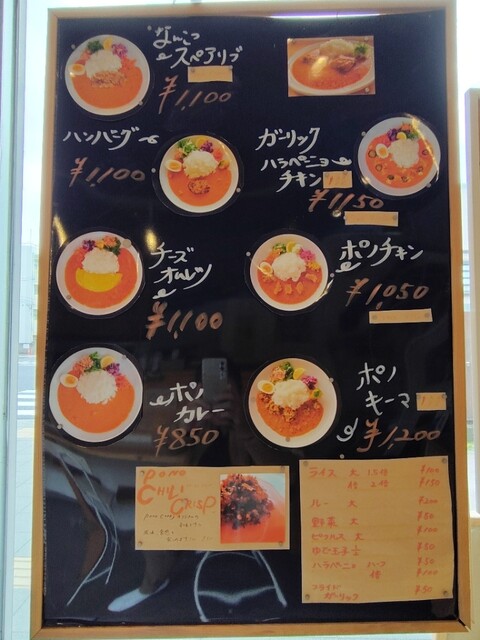 なんこつ
スペアリブ
¥1,100
ハンバーグ
¥1,100
ガーリック
ハラペーニョ
チキン
¥1,150
チーズ
オムレツ
¥1,100
ポノチキン
¥1,050
ポノ
カレー
¥850
ポノ
キーマ
¥1,200
PONO
CHILI
CRISP
ライス 大 1.5倍 ¥100
特 2倍 ¥150
ルー 大 ¥200
野菜 大
ピクルス 大 ¥100
ゆで玉子
ハラペーニョ
倍 ¥100
フライド
ガーリック ¥50